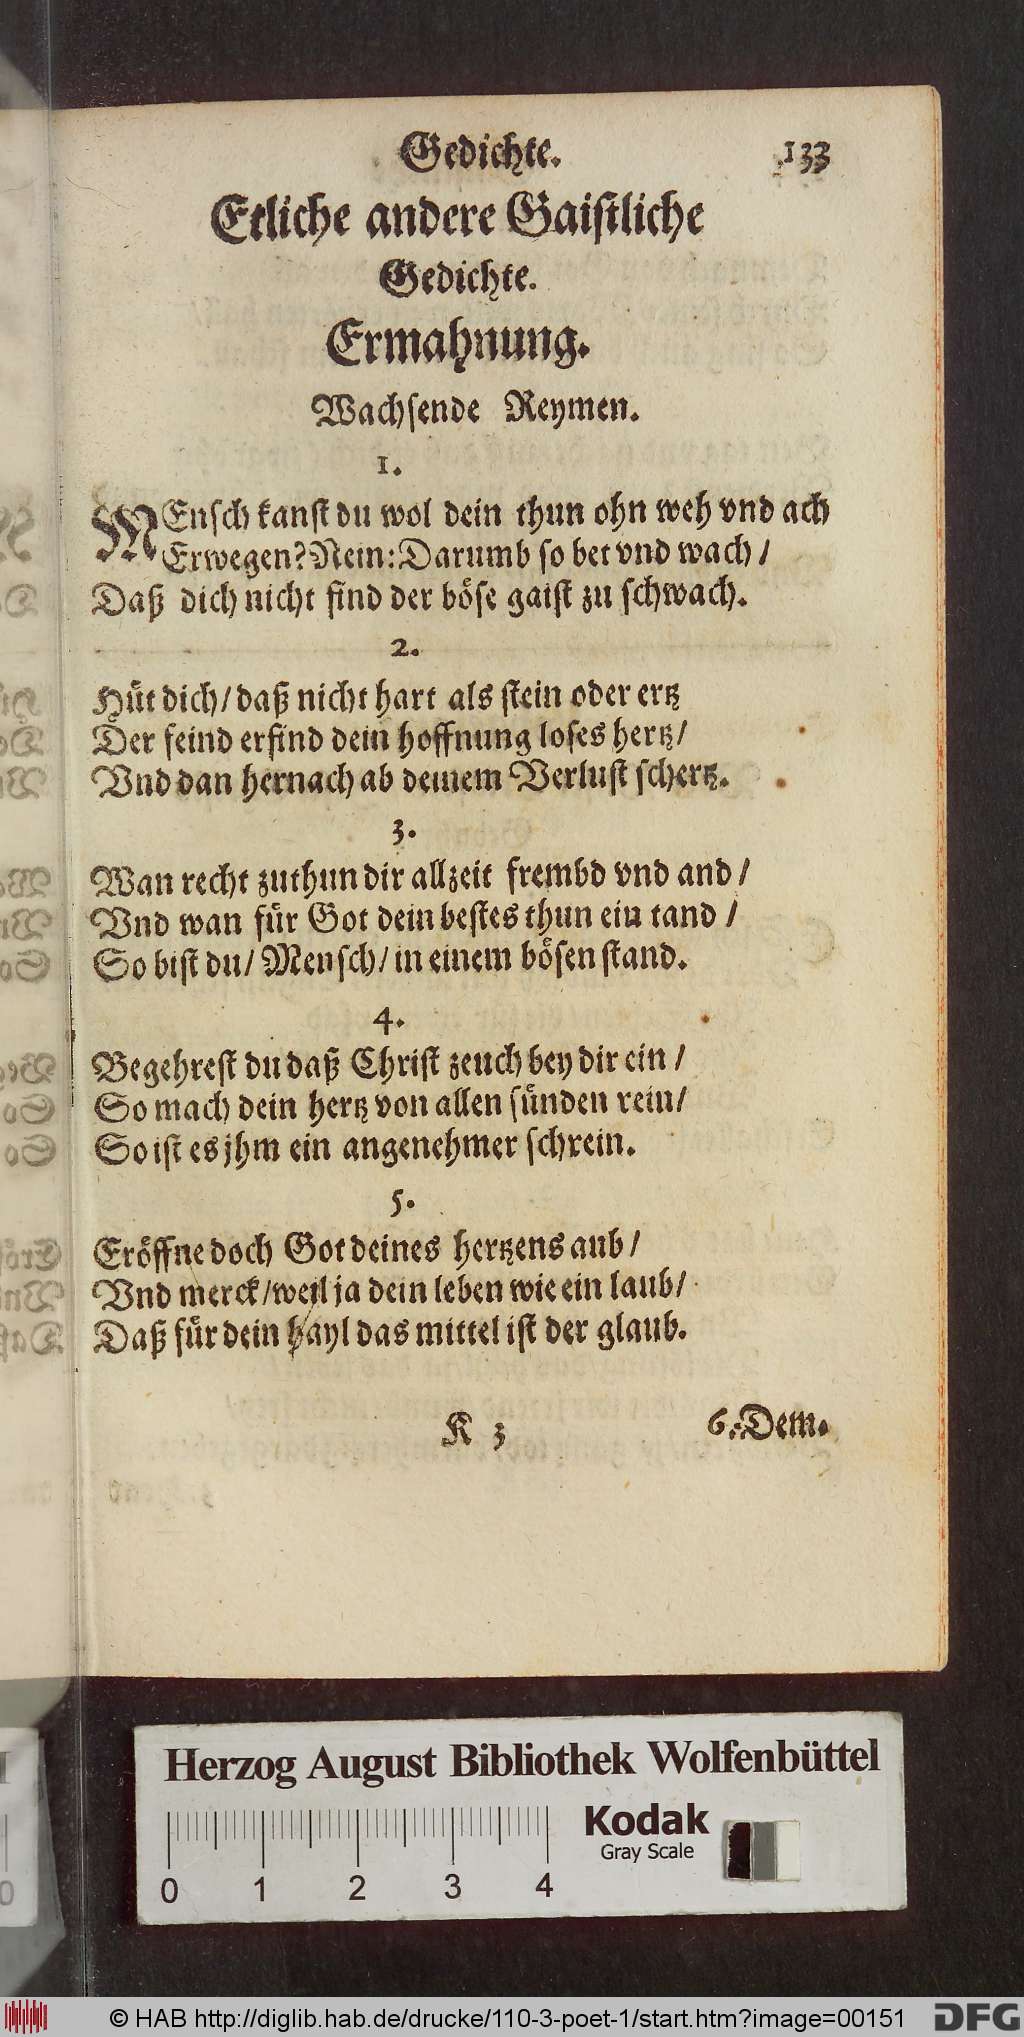 Gedichte. 133
Etliche andere Gaistliche
Gedichte.
Ermahnung.
Wachsende Reymen.
1.
MEnsch kanst du wol dein thun ohn weh vnd ach
Erwegen? Nein: Darumb so bet vnd wach /
Daß dich nicht find der böse gaist zu schwach.
2.
Hüt dich / daß nicht hart als stein oder ertz
Der feind erfind dein hoffnung loses hertz /
Vnd dan hernach ab deinem Verlust schertz.
3.
Wan recht zuthun dir allzeit frembd vnd and /
Vnd wan für Got dein bestes thun ein tand /
So bist du / Mensch / in einem bösen stand.
4.
Begehrest du daß Christ zeuch bey dir ein /
So mach dein hertz von allen sünden rein /
So ist es jhm ein angenehmer schrein.
5.
Eröffne doch Got deines hertzens aub /
Vnd merck / weil ja dein leben wie ein laub /
Daß für dein hayl das mittel ist der glaub.
K 3 6. Dem.
Herzog August Bibliothek Wolfenbüttel
Kodak
Gray Scale
0 1 2 3 4
© HAB http://diglib.hab.de/drucke/110-3-poet-1/start.htm?image=00151 DFG